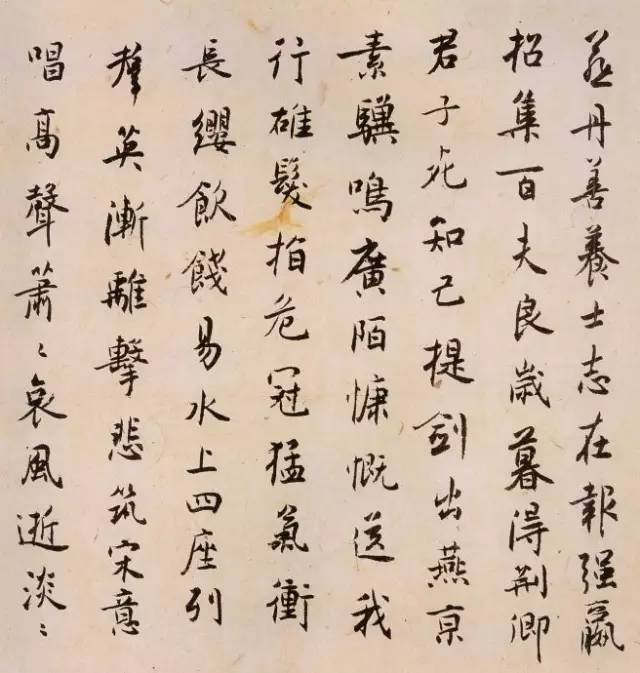 燕丹善養士志在報强嬴
招集百夫良歲暮得荆卿
君子死知己提劍出燕京
素驥鳴廣陌慷慨送我
行雄髮指危冠猛氣衝
長纓飲餞易水上四座列
羣英漸離擊悲筑宋意
唱高聲蕭々哀風逝淡々